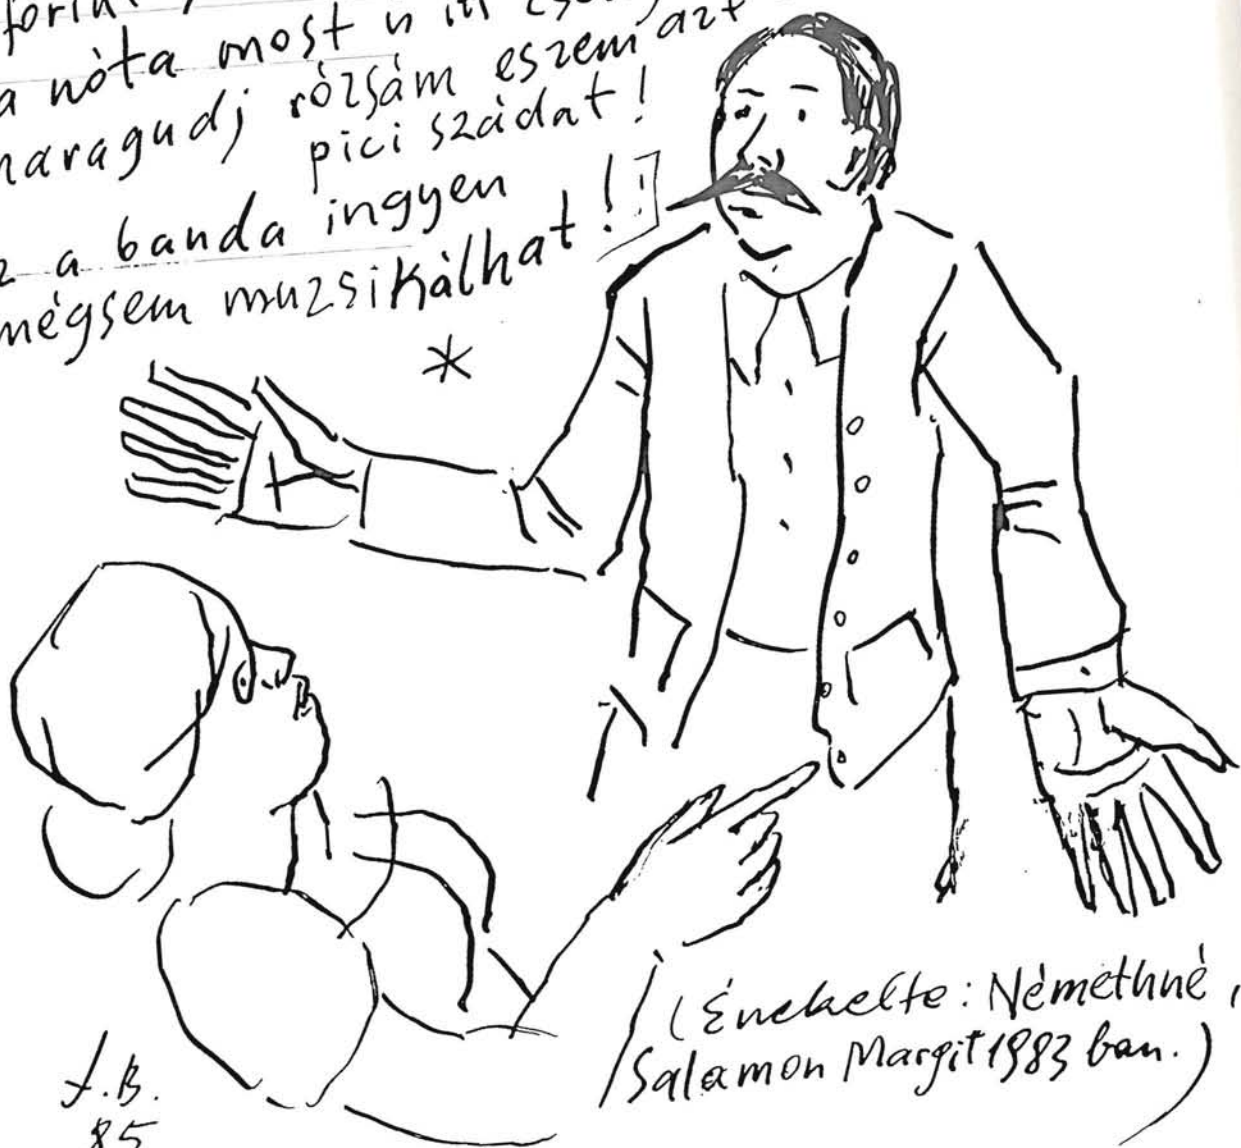 forint
a nóta most is itt
haragudj rózsám eszem azt
pici szádat!
a banda ingyen
mégsem muzsikálhat!
*
(Énekelte: Némethné,
Salamon Margit 1983 ban.)
J.B.
85